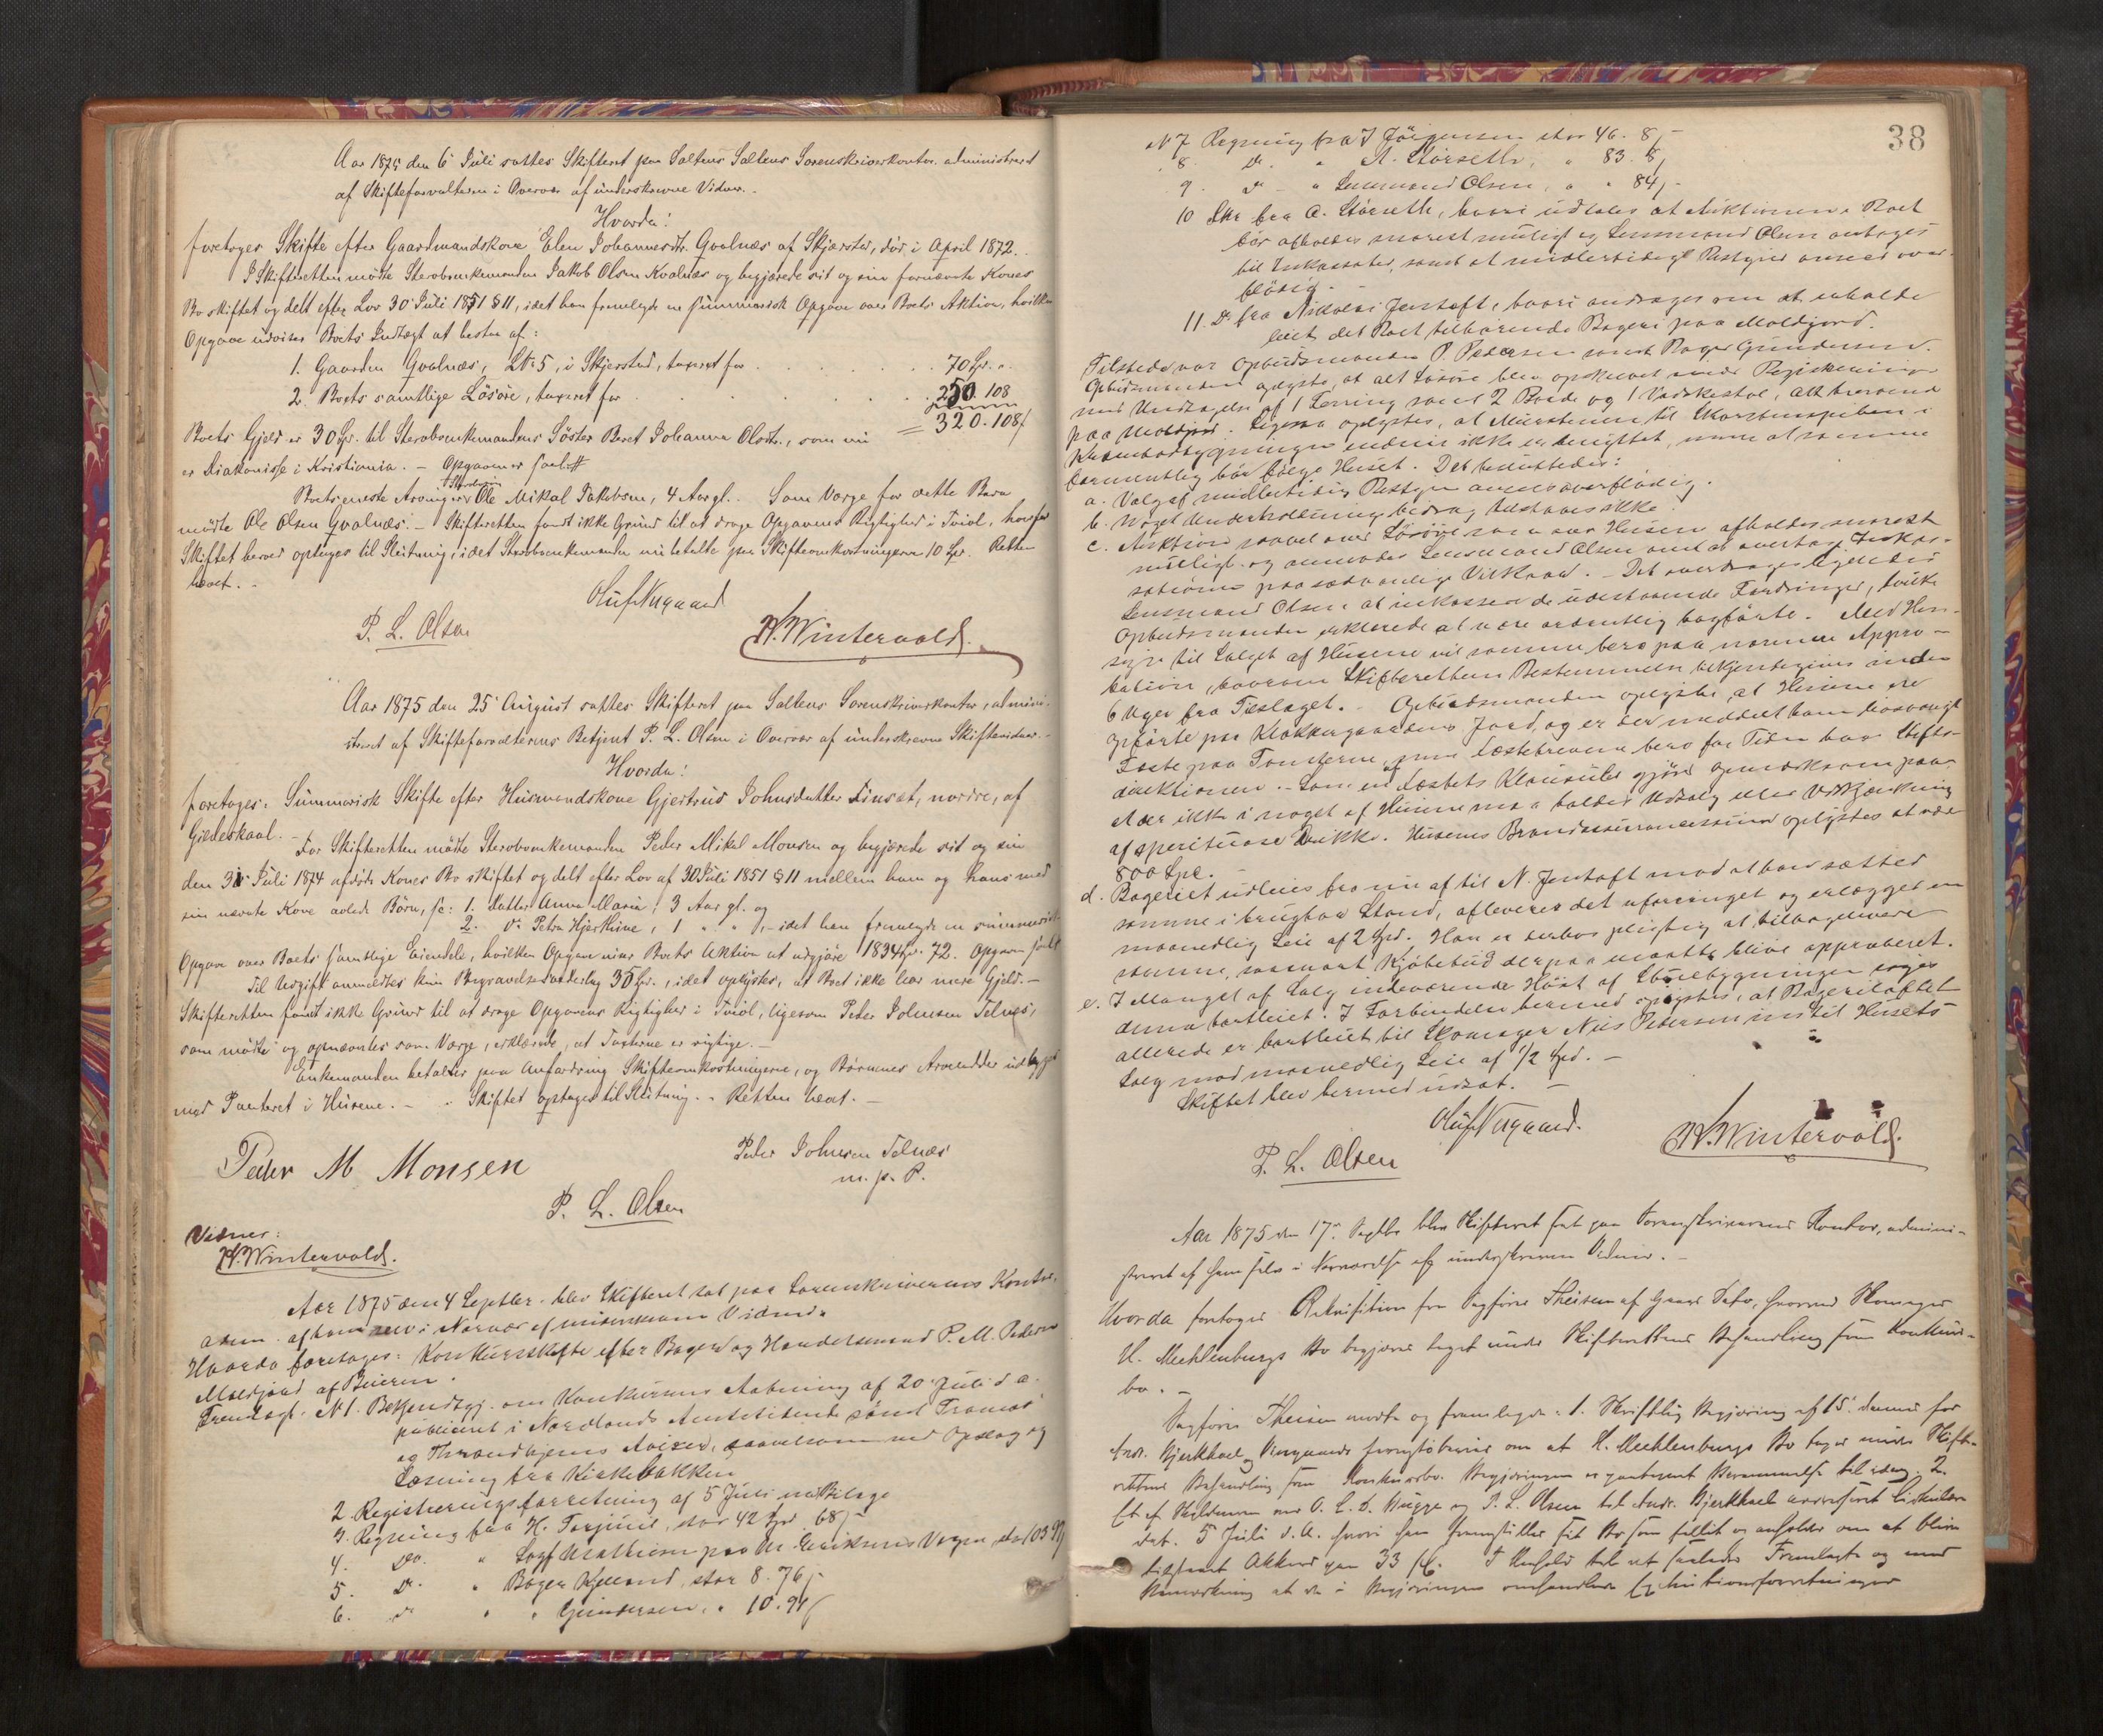 Aar 1875 den 6 Juli sattes Skifteret paa Saltens Saltens Sorenskriverkontor administreret
af Skifteforvalteren i Overvær af underskrevne Vidner. -
Hvorda:
foretoges Skifte efter Gaardmandskone Elen Johannesdtr. Qvalnæs af Skjærstad, død i April 1872. -
I Skifteretten mødte Sterboenkemanden Jakob Olsen Kvalnæs og begjærede sit og sin fornævnte Kones
Bo skiftet og delt efter Lov 30 Juli 1851 § 11, idet han fremlagde en summarisk Opgave over Boets Aktiva, hvilken
Opgave udviser Boets Indtægt at bestaa af:
1. Gaarden Qvalnæs, LN 5, i Skjerstad, taxeret for . . . 70 Spd. "
2. Boets samtlige Løsøre, taxeret for . . . 250. 108
= 320. 108
Boets Gjeld er 30 Spd. til Sterboenkemandens Søster Beret Johanna Olsdtr., som nu
er Diakonisse i Kristiania. - Opgaven er
Boets eneste Arving er Ole Mikal Jakobsen, 4 Aar gl. . Som Værge for dette Barn
mødte Ole Olsen Qvalnæs. - Skifteretten fandt ikke Grund til at drage Opgavens Rigtighed i Tvivl, hvorfor
Skiftet herved optages til Slutning, idet Sterboenkemanden nu betalte paa Skifteomkostningerne 10 Spd. Retten
hævet. -
Oluf Nygaard
P. L. Olsen
W. Wintervold.
Aar 1875 den 25 August sattes Skifteret paa Saltens Sorenskriverkontor, admini-
streret af Skifteforvalterens Betjent P. L. Olsen i Overvær af underskrevne Skiftevidner. -
Hvorda:
foretoges: Summarisk Skifte efter Husmandskone Gjertrud Johnsdatter Finset, nordre, af
Gildeskaal. -
For Skifteretten mødte Sterboenkemanden Peder Mikal Monsen og begjærede sit og sin
den 31 Juli 1874 afdøde Kones Bo skiftet og delt efter Lov af 30 Juli 1851 § 11 mellem ham og hans med
sin nævnte Kone avlede Børn, sc: 1. Datter Anna Maria, 3 Aar gl. og
2. do Petra Hjertkine, 1 " " , - idet han fremlagde en summarisk
Opgave over Boets samtlige Eiendele, hvilken Opgave viser Boets Aktiva at udgjøre 183 Spd. 72. Opgaven
Til Udgift anmeldtes kun Begravelsesvederlag 35 Spd., idet oplystes, at Boet ikke har mere Gjeld. -
Skifteretten fandt ikke Grund til at drage Opgavens Rigtighed i Tvivl, ligesom Peder Johnsen Telnæs,
som mødte og opnævntes som Værge, erklærede, at Taxterne er rigtige. -
Enkemanden betaler paa Anfordring Skifteomkostningerne, og Børnenes Arvelodder
mod Panteret i Husene. - - Skiftet optages til Slutning. - Retten hævet. -
Peder M Monsen
Peder Johnsen Telnæs
m. p. P.
P. L. Olsen
Vidner:
W. Wintervold.
Aar 1875 den 4 Septbr. blev Skifteret sat paa Sorenskriverens Kontor,
adm. af ham selv i Nærvær af underskrevne Vidner.
Hvorda foretoges: Konkursskifte efter Bager og Handelsmand P. M. Pedersen
Moldjord af Beieren.
Fremlagt: N 1. Bekjendtgj. om Konkursens Aabning af 20 Juli d. a.
publiceret i Nordlands Amtstidende samt Tromsø
og Throndhjems Aviser, saavelsom ved Opslag og
Læsning fra Kirkebakken
2 Registreringsforretning af 5 Juli med Bilage
3. Regning fra H. Torjuul, stor 42 Spd 68
4. Do. " Sagf Mathiesen paa M. Eriksens Vegne,
5. Do. " Bager Kjelland, stor 8. 76
6. do " " Gundersen, " 10. 91
38
N 7 Regning fra J Jörgensen stor 46. 8
8. do. " A. Störseth, " 83. 8
9. do - " Lensmand Olsen, " " 84
10 Skr. fra A. Störseth, hvori udtales at Auktionen i Boet
bør afholdes snarest muligt og Lensmand Olsen antages
til Inkassator, samt at midlertidigt Bestyrer ansees over-
flødig.
11. Do fra Nikolai Jentoft, hvori andrages om at erholde
leiet det Boet tilhørende Bageri paa Moldjord.
Tilstede var Opbudsmanden P. Pedersen samt Bager Gundersen.
Opbudsmanden oplyste, at alt Løsøre blev opskrevet under Registrering
med Undtagelse af 1 Terring samt 2 Borde og 1 Vadskestol, alt beroende
paa Moldjord. Ligesaa oplystes, at Murstenen til Skorstenspiben i
Krambodbygningen endnu ikke er benyttet, mene at samme
formentlig bør følge Huset. Det besluttedes:
a. Valg af midlertidig Bestyrer ansees overflødig.
b. Noget Underholdningsbidrag tilstaaes ikke.
c. Auktion saavel over Løsøre som over Husene afholdes snarest
muligt og anmodes Lensmand Olsen om at overtage Inkas-
sationen paa sædvanlige Vilkaar. - Det overdrages ligeledes
Lensmand Olsen at inkassere de udestaaende Fordringer, hvilke
Opbudsmanden erklærede at være ordentlig bogførte. Med Hen-
syn til Salget af Husene vil samme bero paa nærmere Appro-
bation, hvorom Skifterettens Bestemmelse bekjendtgives inden
6 Uger fra Tilslaget. - Opbudsmanden oplyste at Husene ere
opførte paa Klokkergaardens Jord, og er der meddelt ham livsvarigt
Fæste paa Tomterne, men Fæstebrevene bero for Tiden hos Stifts-
direktionen. - Som en af Fæstets Klausuler gjøres opmærksom paa
at der ikke i noget af Husene maa holdes Udsalg eller Udskjænkning
af spirituøse Drikke. Husenes Brandassurancesum oplystes at være
800 Spd. -
d. Bageriet udleies fra nu af til N. Jentoft mod at han sætter
samme i brugbar Stand, afleverer det uforringet og erlægger en
maanedlig Leie af 2 Spd. Han er derhos pligtig at tilbagelevere
samme, saasnart Kjøbebud derpaa maatte blive approberet.
e. I Mangel af Salg indeværende Høst af Stuebygningen søges
denne bortleiet. I Forbindelse hermed oplystes, at Bageriloftet
allerede er bortleiet til Skomager Nils Pedersen indtil Husets
Salg mod maanedlig Leie af 1/2 Spd. -
Skiftet blev hermed udsat. -
Oluf Nygaard.
P. L. Olsen
W. Wintervold.
Aar 1875 den 17. Septbr blev Skifteret sat paa Sorenskriverens Kontor, admini-
streret af ham selv i Nærværelse af underskrevne Vidner. -
Hvorda foretoges Rekvisition fra Sagfører Theisen af Gaard hvorved
H. Mechlenburgs Bo begjæres taget under Skifterettens Behandling som Konkurs-
bo. -
Sagfører Theisen mødte og fremlagde: 1. Skriftlig Begjæring af 15 dennes for
Andr. Bjerkhael om at H. Mechlenburgs Bo tages under Skifte-
rettens Behandling som Konkursbo. Begjæringen er paategnet Berammelse til idag. 2.
Et af O. L. S. Bugge og P. L. Olsen til Andr. Bjerkhael
dat. 5 Juli d. A. hvori han fremstiller sit Bo som fallit og anholder om at blive
Akkord paa 33 I Henhold til det saaledes Fremlagte og med
Bemærkning at de i Begjæringen omhandlede Exekutionsforretninger